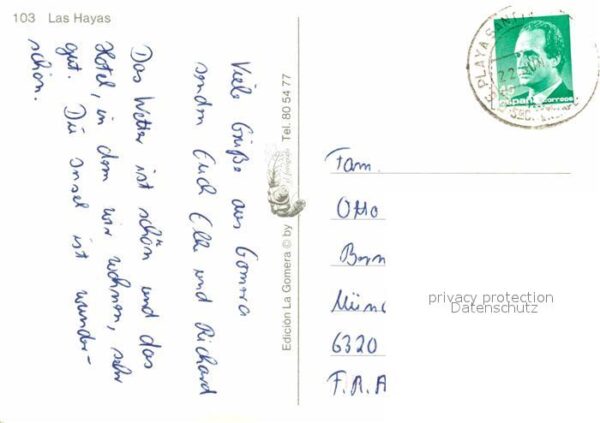 103 Las Hayas
Viele Grüße aus Gomera
senden Euch Elke und Richard
Das Wetter ist schön und das
Hotel, in dem wir wohnen, sehr
gut. Die Insel ist wunder-
schön.
Edición La Gomera © by
Tel. 80 54 77
PLAYA SAN
22
España correos
Fam.
Otto
Münc
6320
F.R.A
privacy protection
Datenschutz